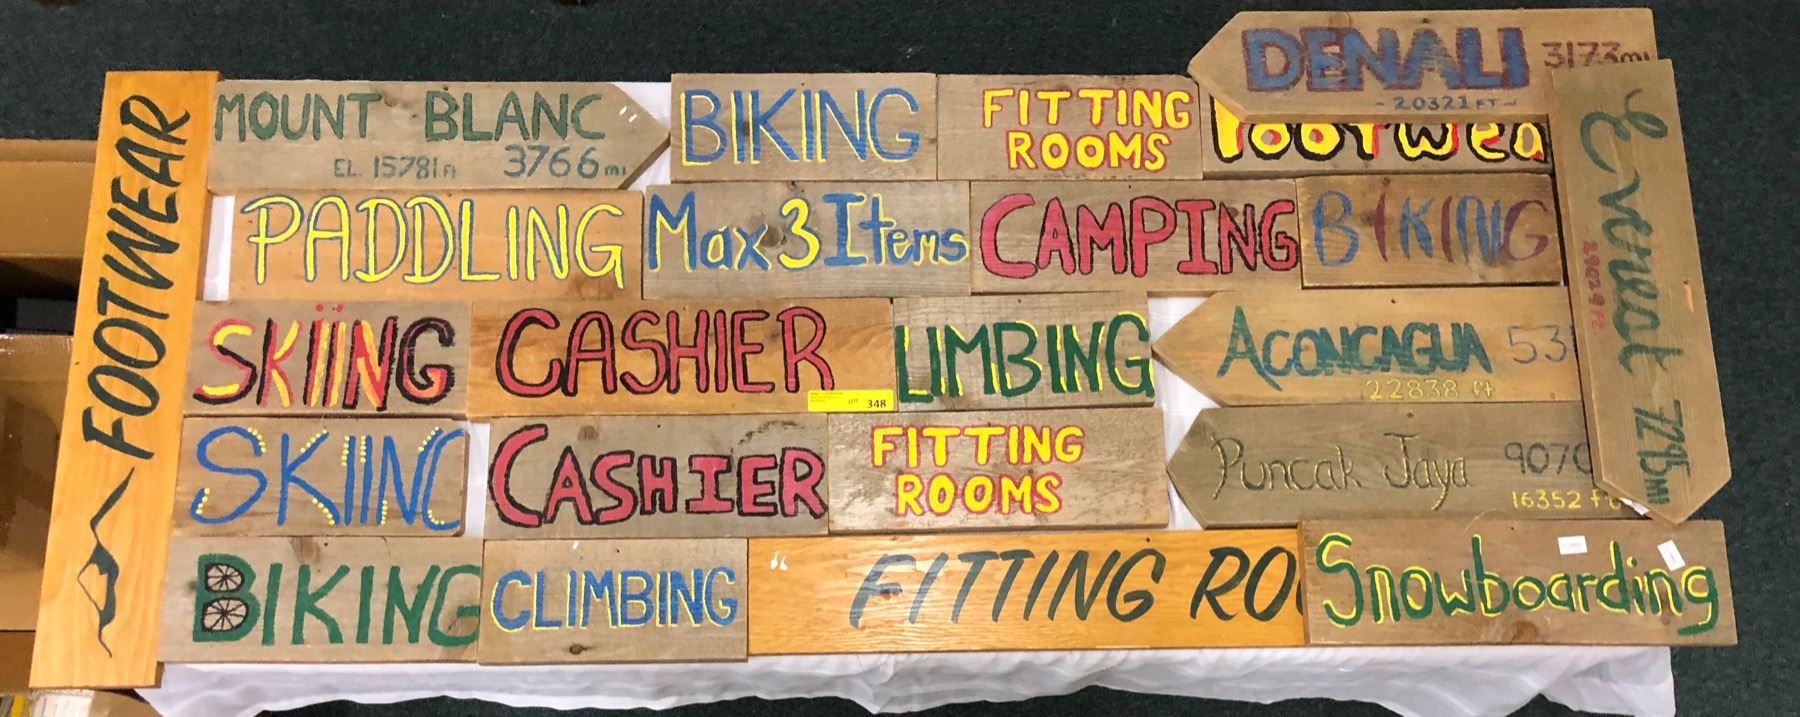 FOOTWEAR
MOUNT BLANC
EL. 15781 ft 3766 mi
BIKING
FITTING
ROOMS
Footwea
DENALI 3173 mi
- 20321 FT -
PADDLING
Max 3 Items
CAMPING
BIKING
Everest 7295 mi
29029 ft
SKiiNG
CASHIER
LOT 348
LIMBING
ACONCAGUA 53
22838 ft
SKIING
CASHIER
FITTING
ROOMS
Puncak Jaya 9070
16352 ft
BIKING
CLIMBING
FITTING RO
Snowboarding